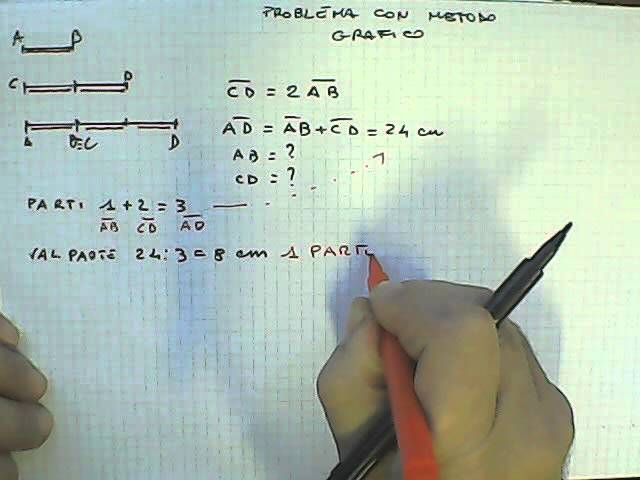 PROBLEMA CON METODO
GRAFICO
A B
C D
CD = 2 AB
A B≡C D
AD = AB + CD = 24 cm
AB = ?
CD = ?
PARTI 1 + 2 = 3
AB CD AD
VAL PARTE 24 : 3 = 8 cm 1 PARTE